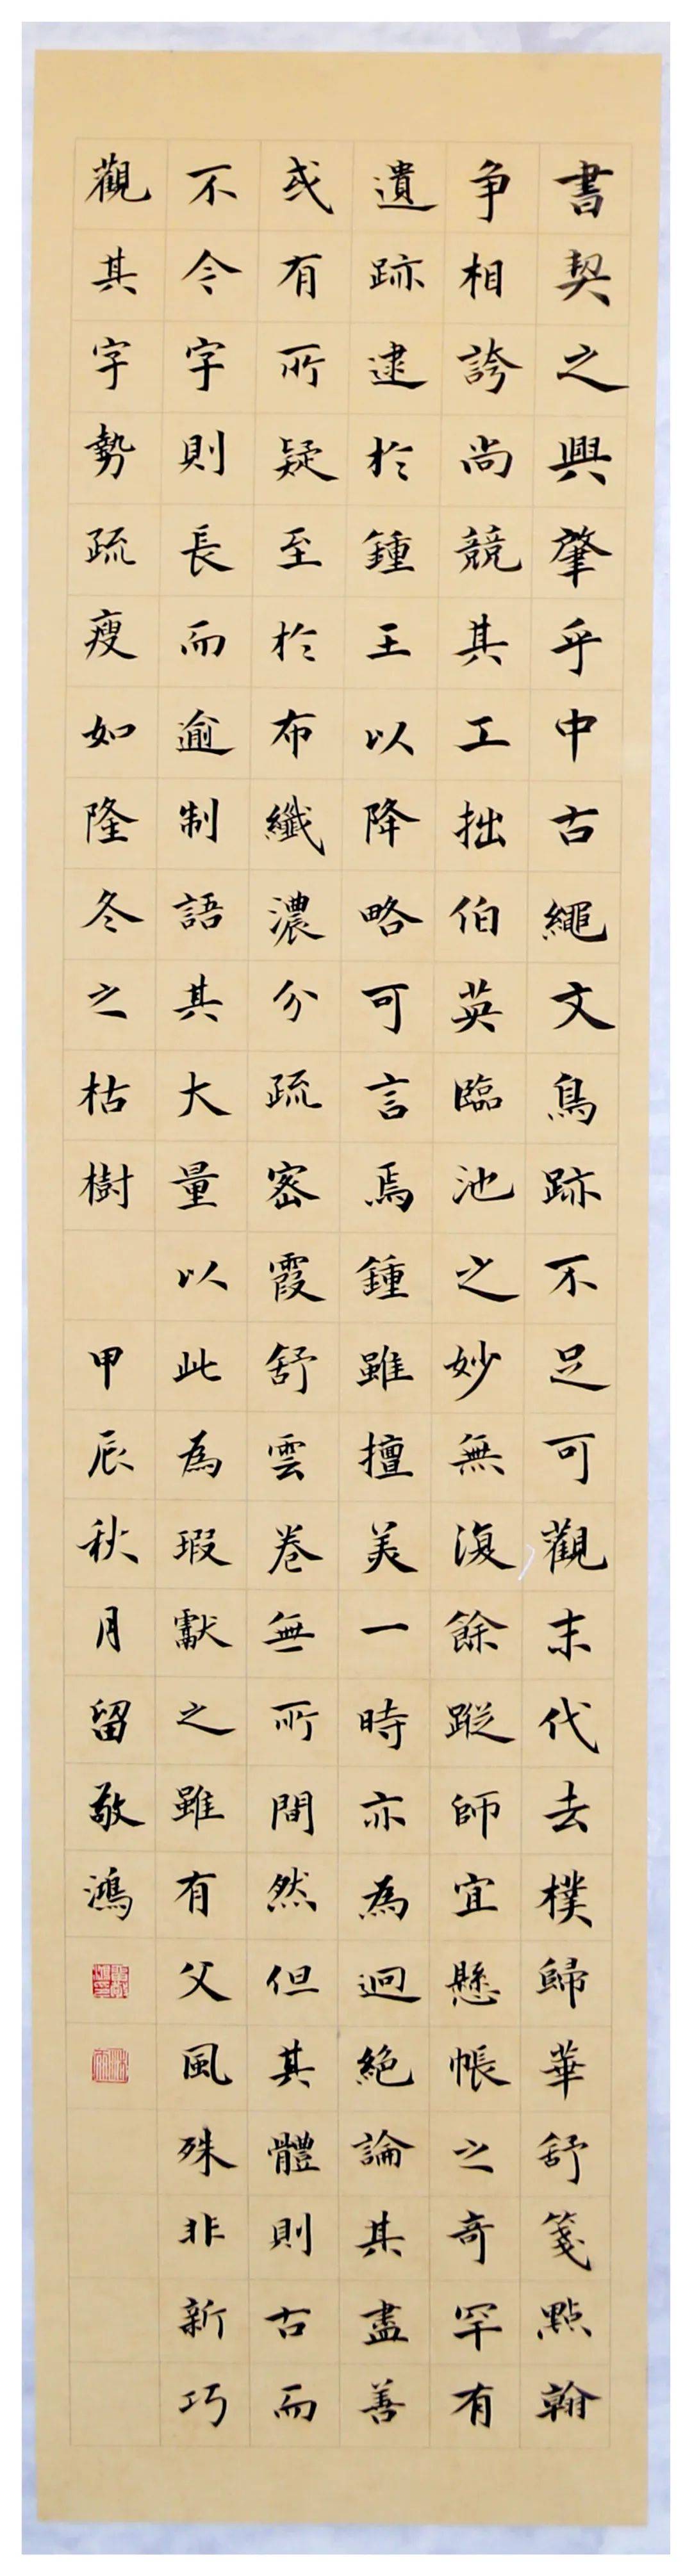 書契之興肇乎中古繩文鳥跡不足可觀末代去樸歸華舒箋點翰
争相誇尚競其工拙伯英臨池之妙無復餘蹤師宜懸帳之奇罕有
遺跡逮於鍾王以降略可言焉鍾雖擅美一時亦為迥絕論其盡善
或有所疑至於布纖濃分疏密霞舒雲卷無所間然但其體則古而
不今字則長而逾制語其大量以此為瑕獻之雖有父風殊非新巧
觀其字勢疏瘦如隆冬之枯樹 甲辰秋月留敬鴻